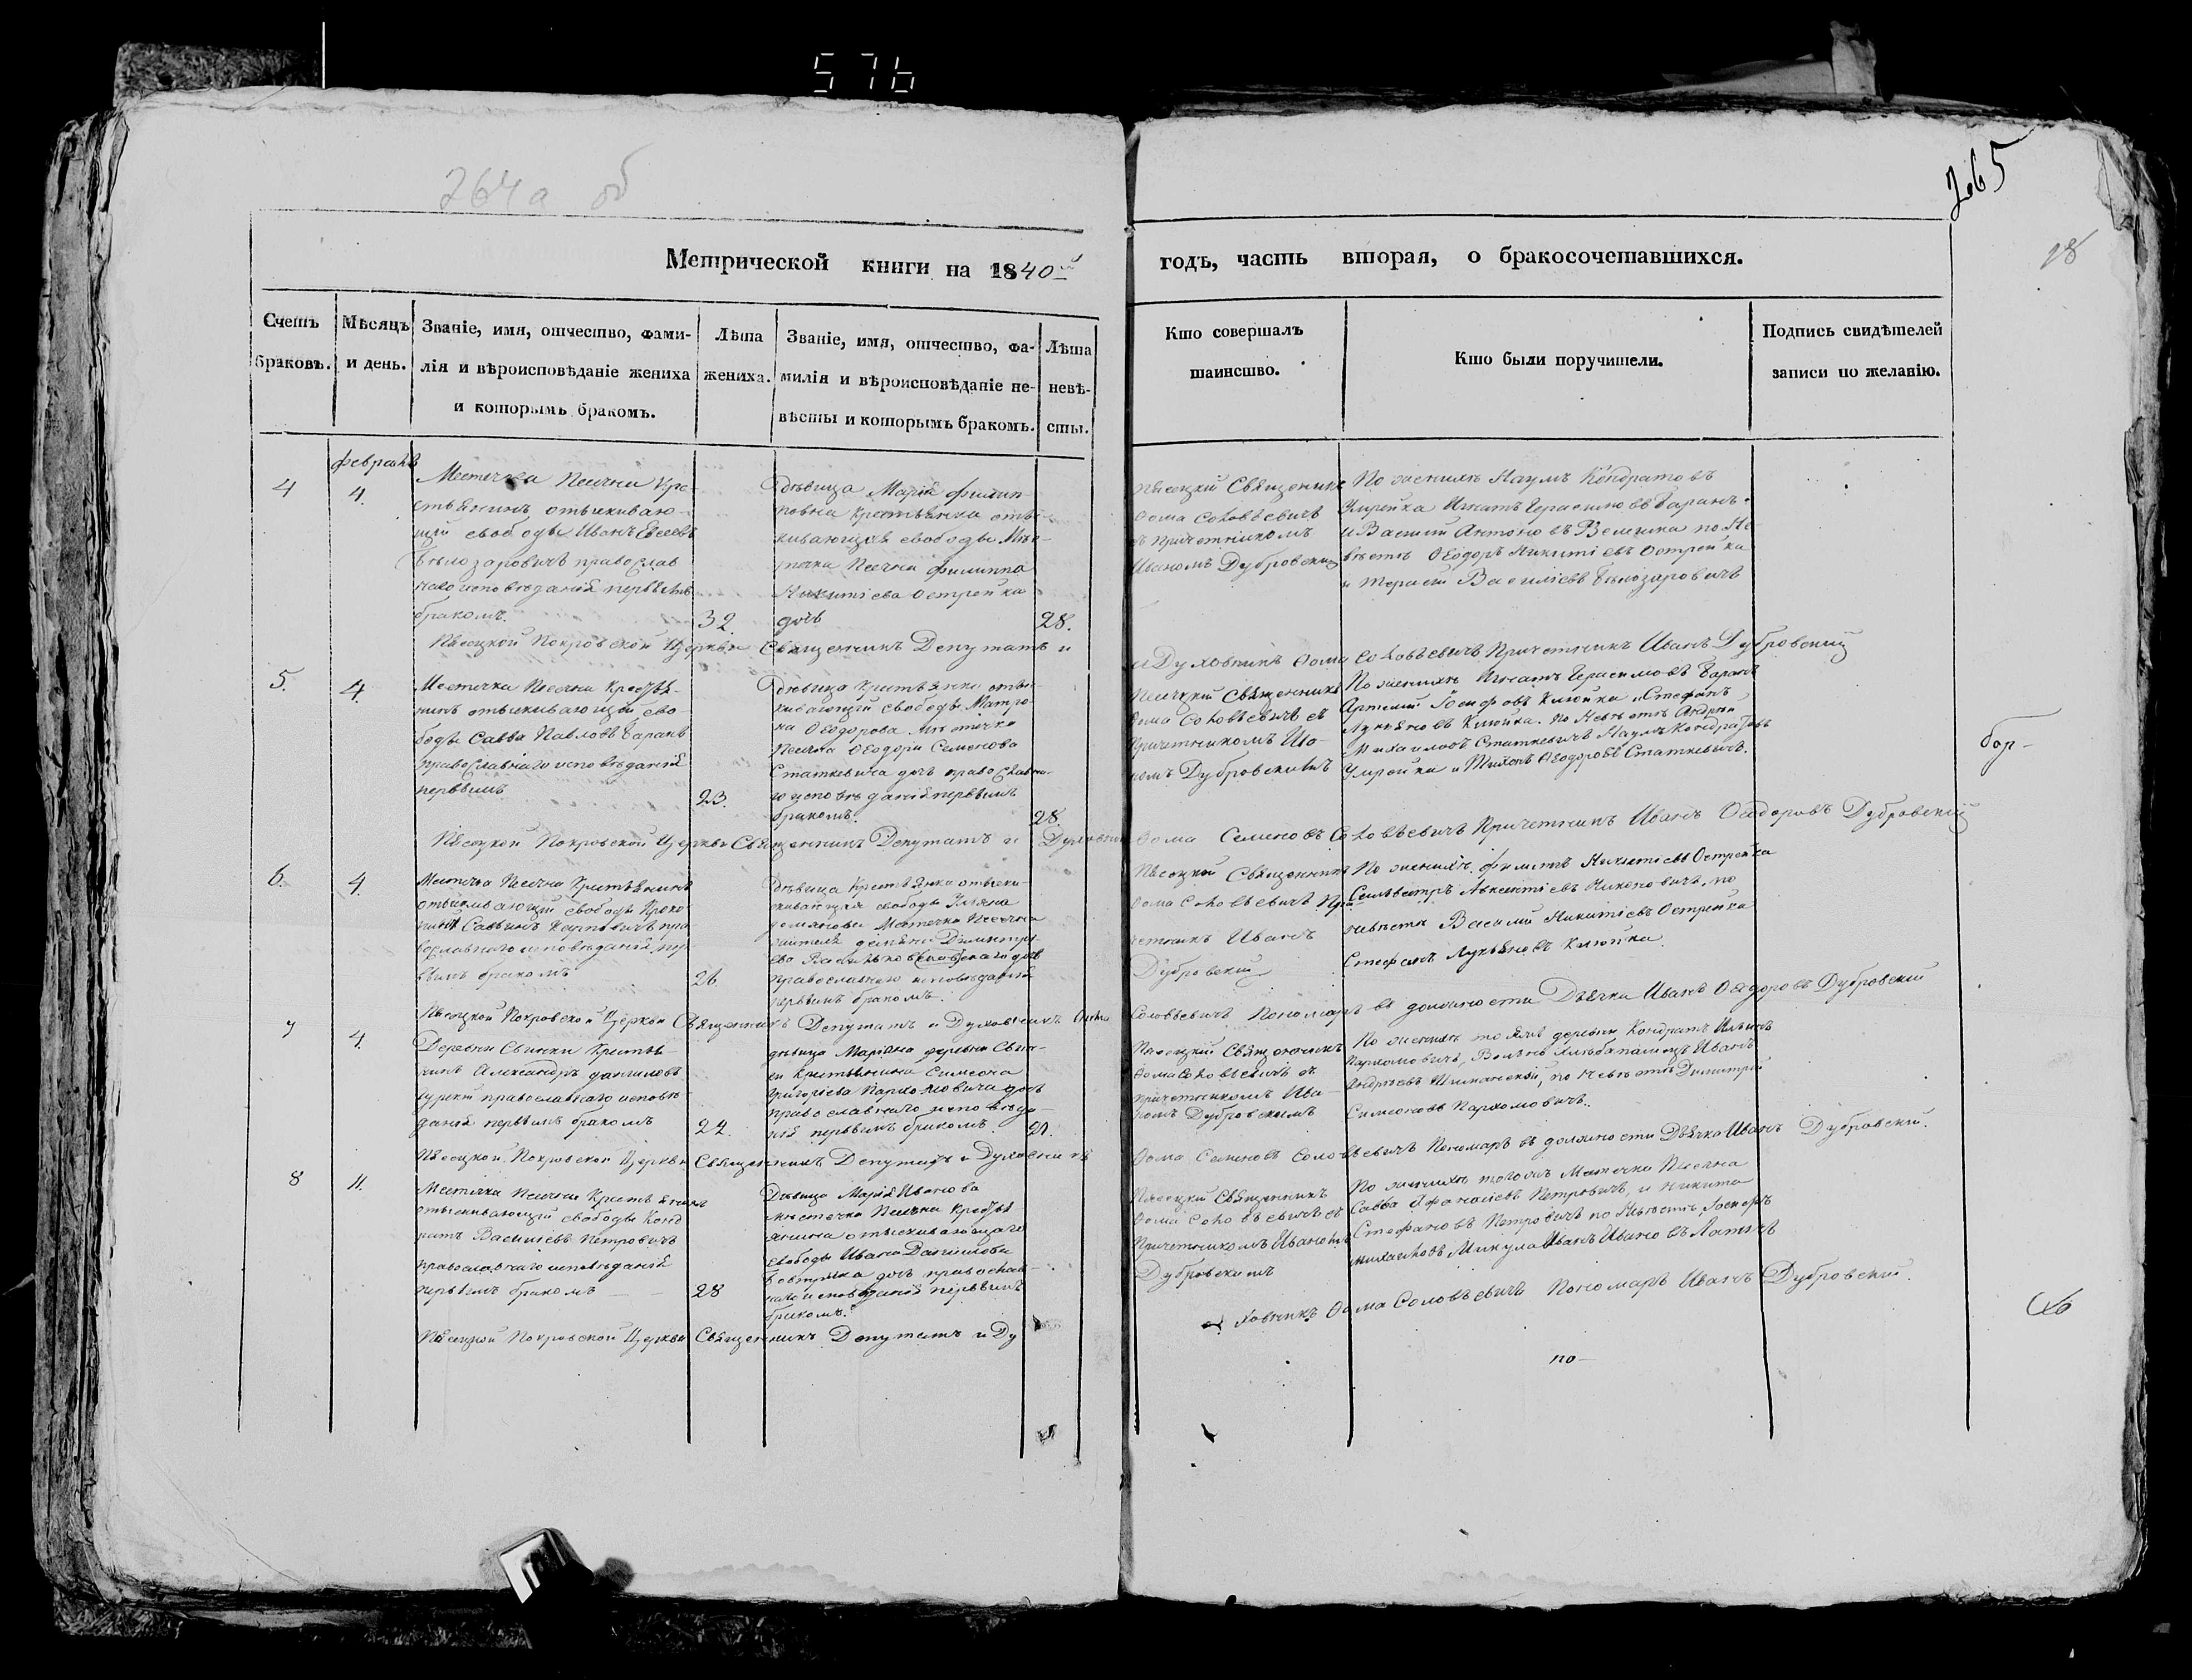 576
264а об
265
28
Метрической книги на 1840й годъ, часть вторая, о бракосочетавшихся.
Счетъ браковъ.
Мѣсяцъ и день.
Званіе, имя, отчество, фами-
лія и вѣроисповѣданіе жениха
и которымъ бракомъ.
Лѣта
жениха.
Званіе, имя, отчество, фа-
милія и вѣроисповѣданіе не-
вѣсты и которымъ бракомъ.
Лѣта
невѣ-
сты.
Кто совершалъ
таинство.
Кто были поручители.
Подпись свидѣтелей
записи по желанію.
февраль
4
4.
Местечка Песчки Кре-
стьянинъ отыскиваю-
щій свободы Иванъ Евсеевъ
Бѣлозаровичъ православ
наго исповѣданія первымъ
бракомъ.
32.
Дѣвица Марія Филип-
повна крестьянка оты-
кивающая свободы Мѣс-
течка Песчки Филиппа
Никитіева Острейка
дочь
28.
Пѣсоцкій Священникъ
Фома Соловьевичъ
съ причетникомъ
Иваномъ Дубровскимъ
По женихѣ Наумъ Кондратовъ
Умрейка Игнатъ Герасимовъ Баранъ
и Василій Антоновъ Велечка по Не
вѣстѣ Ѳеодоръ Никитіевъ Острейка
и Терасій Василіевъ Бѣлозаровичъ
Пѣсоцкой Покровской Церкви Священникъ Депутатъ и
и Духовникъ Фома Соловьевичъ Причетникъ Иванъ Дубровскій
5.
4.
Местечка Песчки Крестья-
нинъ отыскивающій сво-
боды Савва Павловъ Баранъ
православнаго исповѣданія
первымъ
23.
Дѣвица крестьянка оты-
кивающій свободы Матро-
на Ѳеодорова Мѣстечка
Песчка Ѳеодора Семенова
Статкевича дочь православна-
го исповѣданія первымъ
бракомъ.
28.
Песоцкій Священникъ
Фома Соловьевичъ съ
Причетникомъ Ива-
номъ Дубровскимъ
По женихѣ Игнатъ Герасимовъ Баранъ
Артемій Іосифовъ Клюйка и Стефанъ
Лукьяновъ Клюйка. По Невѣстѣ Андрей
Михаиловъ Статкевичъ Наумъ Кондратовъ
Умрейка и Тихонъ Ѳеодоровъ Статкевичъ.
бор-
Пѣсоцкой Покровской Церкви Священникъ Депутатъ и Духовникъ
Фома Семеновъ Соловьевичъ Причетникъ Иванъ Ѳеодоровъ Дубровскій
6.
4.
Местечка Песчки Крестьянинъ
отыскивающій свободы
Саввинъ Карповичъ пра
вославнаго исповѣданія пер
вымъ бракомъ
26
Дѣвица Крестьянка отыски-
вающая свободы Ульяна
Местечка Песчки
Димитрі-
ева дочь
православнаго исповѣданія
первымъ бракомъ.
Пѣсоцкій Священникъ
Фома Соловьевичъ При
четникъ Иванъ
Дубровскій
По женихѣ Филипъ Никитіевъ Острейка
Сильвестръ Авксентіевъ Никоновичъ, по
невѣстѣ Василій Никитіевъ Острейка
Стефанъ Лукьяновъ Клюйка.
Пѣсоцкой Покровской Церкви Священникъ Депутатъ и Духовникъ Фома
Соловьевичъ Пономарь въ должности Дьячка Иванъ Ѳеодоровъ Дубровскій
7
4.
Деревни Свинки Крестья-
нинъ Александръ Даниловъ
православнаго исповѣ-
данія первымъ бракомъ
24.
дѣвица Маріяна деревни Свин-
ки Крестьянина Симеона
Григоріева Пархомовича дочь
православнаго исповѣда-
нія первымъ бракомъ
21.
Песоцкій Священникъ
Фома Соловьевичъ съ
причетникомъ Ива-
номъ Дубровскимъ
По женихѣ тояже деревни Кондратъ Ильинъ
Пархомовичъ, Иванъ
Андреевъ Шиманскій, по невѣстѣ Димитрій
Симеоновъ Пархомовичъ.
Пѣсоцкой Покровской Церкви Священникъ Депутатъ и Духовникъ
Фома Семеновъ Соловьевичъ Пономарь въ должности Дьячка Иванъ Дубровскій.
8
11.
Местечка Песчки Крестьянинъ
отыскивающій свободы Конд
ратъ Василіевъ Петровичъ
православнаго исповѣданія
первымъ бракомъ
28
Дѣвица Марія Иванова
мѣстечка Песчки Крестья
янина отыскивающаго
свободы Ивана Данилова
дочь православ-
наго исповѣданія первымъ
бракомъ.
Песоцкій Священникъ
Фома Соловьевичъ съ
Причетникомъ Иваномъ
Дубровскимъ
По женихѣ тогожъ Местечка Песчка
Савва Афанасіевъ Петровичъ, и Никита
Стефановъ Петровичъ по Невѣстѣ, Іосифъ
Михаиловъ Микула Иванъ Ивановъ
Пѣсоцкой Покровской Церкви Священникъ Депутатъ и Ду
ховникъ Фома Соловьевичъ Пономарь Иванъ Дубровскій.
по-